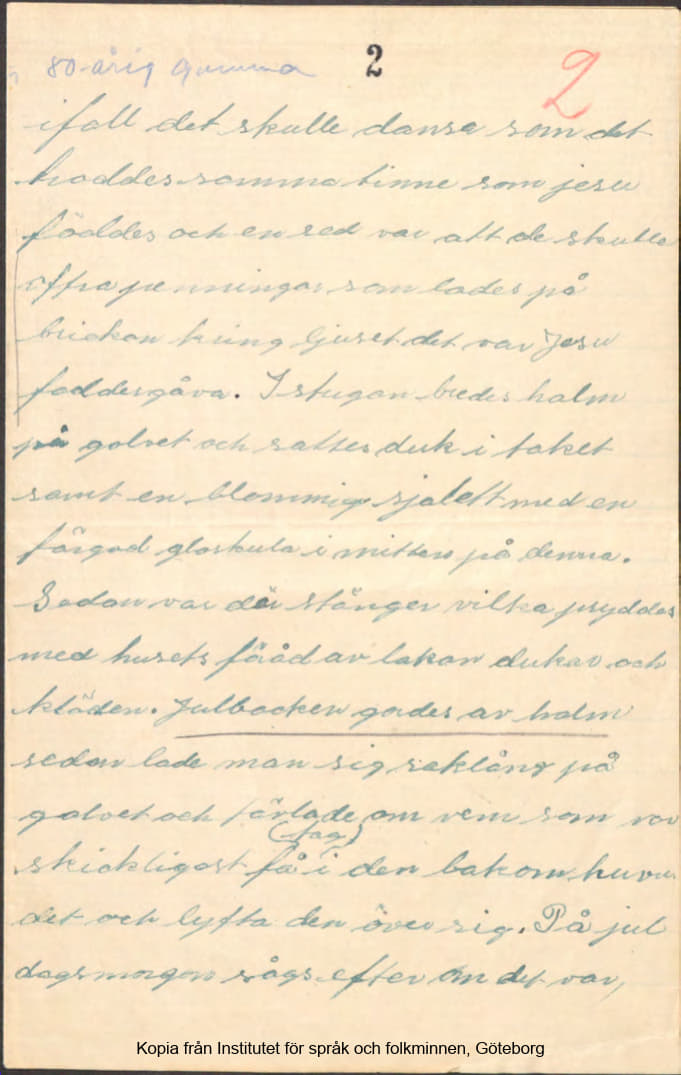 80-årig gumma
2
2
ifall det skulle danse som det
troddes samma timme som jesu
föddes och en sed var att de skulle
offra penningar som lades på
brickan kring ljuset det var Jesu
foddesgåva. I stugan bredes halm
på golvet och sattes duk i taket
samt en blommig sjalett med en
färgad gloskula i mitten på denna.
Sedan var där stänger vilka pryddes
med husets föråd av lakan dukar och
kläden. Julbocken gordes av halm
sedan lade man sig raklång på
golvet och tävlade om vem som var
(tag)
skickligast få i den bakom huvu
det och lyfta den över sig. På jul
dagsmorgon sågs efter om det var,
Kopia från Institutet för språk och folkminnen, Göteborg